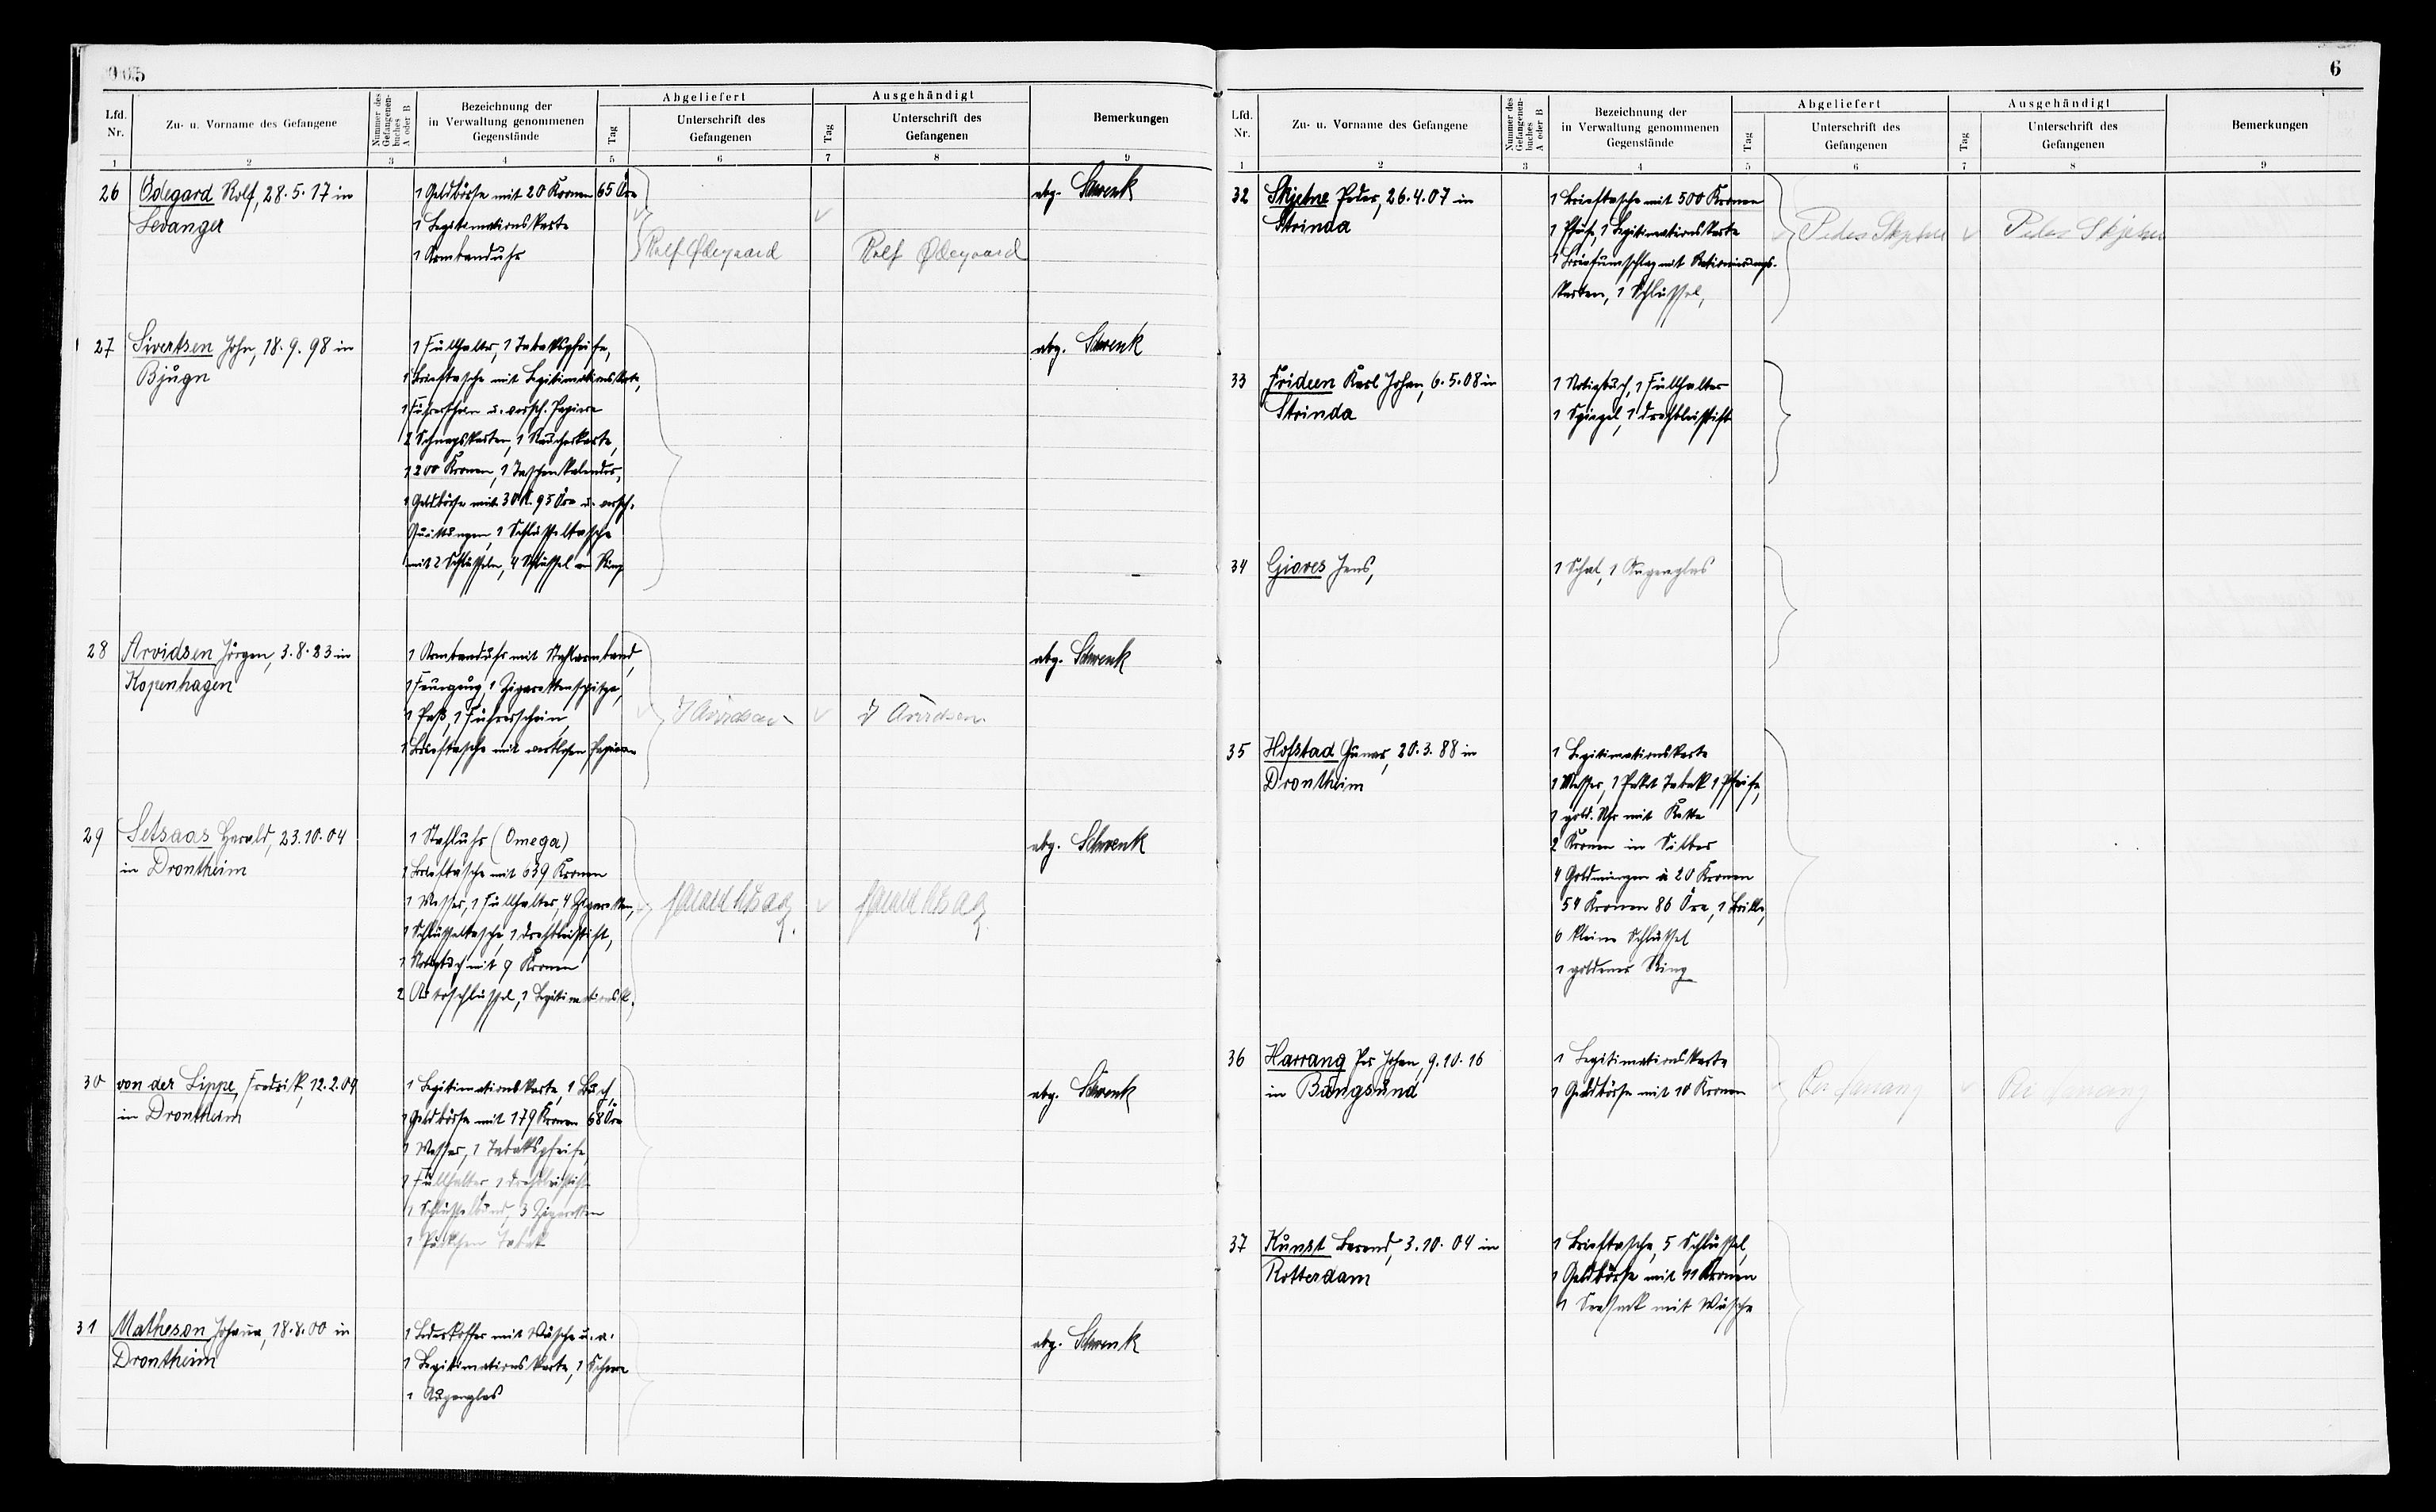 5
Lfd. Nr.
Zu- u. Vorname des Gefangene
Nummer des Gefangenen-buches A oder B
Bezeichnung der in Verwaltung genommenen Gegenstände
Abgeliefert
Tag
Unterschrift des Gefangenen
Ausgehändigt
Tag
Unterschrift des Gefangenen
Bemerkungen
1 2 3 4 5 6 7 8 9
26 Ödegard Rolf, 28.5.17 in
Levanger
1 Geldbörse mit 20 Kronen 65 Öre
1 Legitimationskarte
1 Armbanduhr
Rolf Ødegaard
Rolf Ødegaard
abg. Schwenk
27 Sivertsen John, 18.9.98 in
Bjugn
1 Füllhalter, 1 Tabakspfeife,
1 Brieftasche mit Legitimationskarte,
1 Führerschein u. versch. Papiere
2 Schnapskarten, 1 Raucherkarte,
1200 Kronen, 1 Taschenkalender,
1 Geldbörse mit 30 K. 95 Öre u. versch.
Quittungen, 1 Schlüsseltasche
mit 2 Schlüsseln, 4 Schlüssel am Ring
abg. Schwenk
28 Arvidsen Jörgen, 3.8.23 in
Kopenhagen
1 Armbanduhr mit Stahlarmband,
1 Feuerzeug, 1 Zigarettenspitze,
1 Paß, 1 Führerschein,
1 Brieftasche mit wertlosen Papieren
J Arvidsen
J Arvidsen
abg. Schwenk
29 Setsaas Harald, 23.10.04
in Drontheim
1 Stahluhr (Omega)
1 Brieftasche mit 639 Kronen
1 Messer, 1 Füllhalter, 4 Zigaretten,
1 Schlüsseltasche, 1 Drehbleistift,
1 Notizbuch mit 9 Kronen
2 Autoschlüssel, 1 Legitimationsk.
abg. Schwenk
30 von der Lippe, Fredrik, 12.2.09
in Drontheim
1 Legitimationskarte, 1 Buch,
1 Geldbörse mit 179 Kronen 68 Öre
1 Messer, 1 Tabakspfeife,
1 Füllhalter, 1 Drehbleistift
1 Schlüsselbund, 3 Zigaretten
1 Päckchen Tabak
abg. Schwenk
31 Matheson Johana, 18.8.00 in
Drontheim
1 Lederkoffer mit Wäsche u. a.
1 Legitimationskarte, 1 Schere
1 Augenglas
abg. Schwenk
6
Lfd. Nr.
Zu- u. Vorname des Gefangene
Nummer des Gefangenen-buches A oder B
Bezeichnung der in Verwaltung genommenen Gegenstände
Abgeliefert
Tag
Unterschrift des Gefangenen
Ausgehändigt
Tag
Unterschrift des Gefangenen
Bemerkungen
1 2 3 4 5 6 7 8 9
32 Skjetne Peder, 26.4.07 in
Strinda
1 Brieftasche mit 500 Kronen
1 Pfeife, 1 Legitimationskarte
1 Briefumschlag mit Rationierungs-
karten, 1 Schlüssel,
Peder Skjetne
Peder Skjetne
33 Frideen Karl Johan, 6.5.08 in
Strinda
1 Notizbuch, 1 Füllhalter
1 Spiegel, 1 Drehbleistift
34 Giæves Jens,
1 Schal, 1 Augenglas
35 Hofstad Gunar, 20.3.88 in
Drontheim
1 Legitimationskarte
1 Messer, 1 Paket Tabak 1 Pfeife,
1 gold. Uhr mit Kette
2 Kronen in Silber
4 Goldmünzen à 20 Kronen
54 Kronen 86 Öre, 1 Brille,
6 kleine Schlüssel
1 goldener Ring
36 Harrang Per Johan, 9.10.16
in Bangsund
1 Legitimationskarte
1 Geldbörse mit 10 Kronen
Per Harrang
Per Harrang
37 Kunst Berend, 3.10.04 in
Rotterdam
1 Brieftasche, 5 Schlüssel,
1 Geldbörse mit 11 Kronen
1 Seesack mit Wäsche